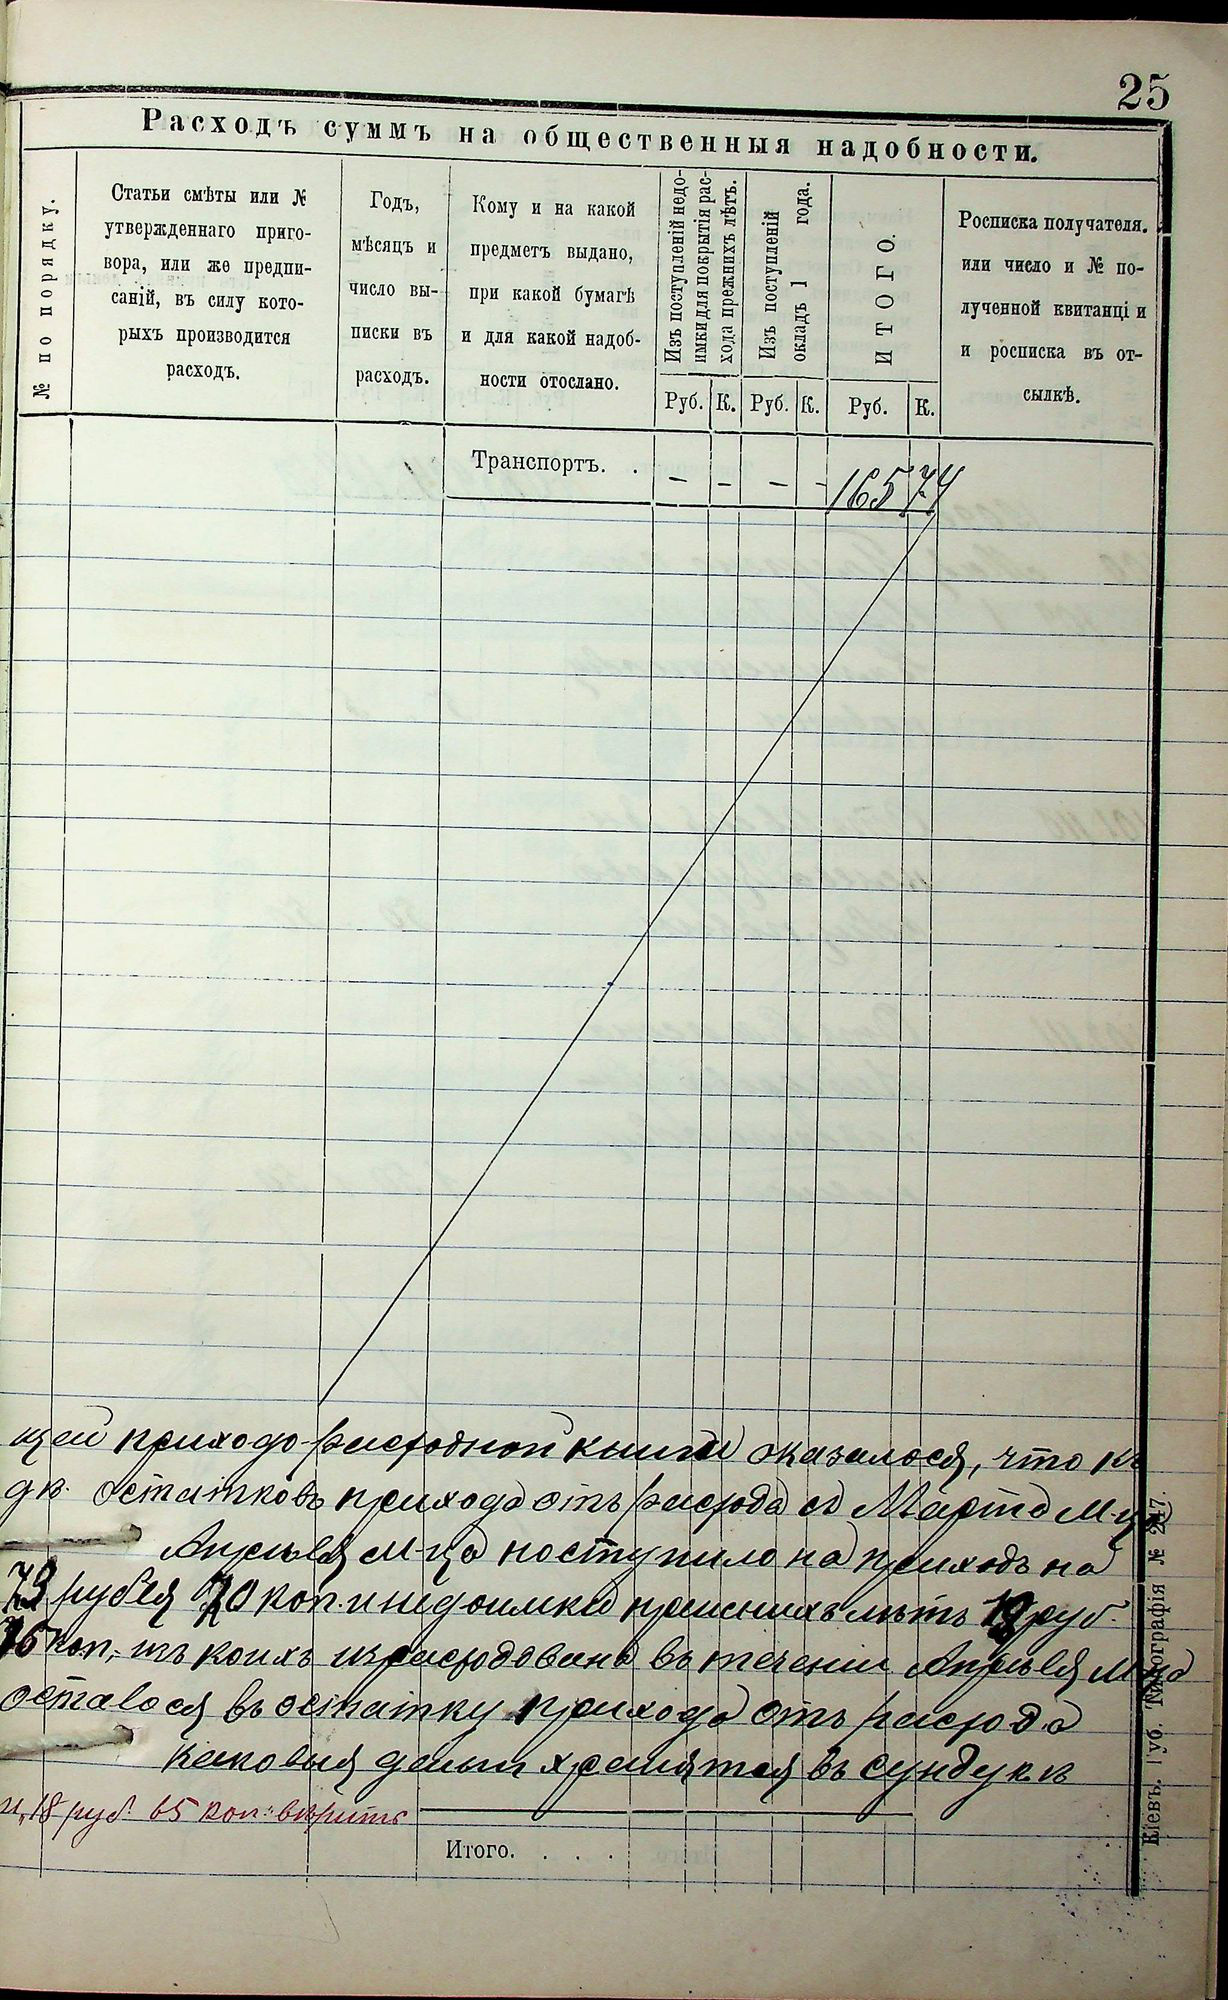 25
Расходъ суммъ на общественныя надобности.
№ по порядку.
Статьи смѣты или №
утвержденнаго приго-
вора, или же предпи-
саній, въ силу кото-
рыхъ производится
расходъ.
Годъ,
мѣсяцъ и
число вы-
писки въ
расходъ.
Кому и на какой
предметъ выдано,
при какой бумагѣ
и для какой надоб-
ности отослано.
Изъ поступленій недо-
имки для покрытія рас-
хода прежнихъ лѣтъ.
Изъ поступленій
окладъ 1 года.
ИТОГО.
Росписка получателя.
или число и № по-
лученной квитанці и
и росписка въ от-
сылкѣ.
Руб. К. Руб. К. Руб. К.
Транспортъ. . - - - - 165 74
щей приходо-расходной книги оказалося, что къ
остатковъ прихода отъ расхода съ Марта м-ца
Апрѣля м-ца поступило на приходъ на
рубля 70 коп. и недоимки прежнихъ лѣтъ руб.
коп., изъ коихъ израсходовано въ теченіи Апрѣля м-ца
осталося въ остатку прихода отъ расхода
каковыя деньги хранятся въ сундукѣ
18 руб. 65 коп. вѣрить
Итого. . . .
Кіевъ. Губ. Типографія № 247.